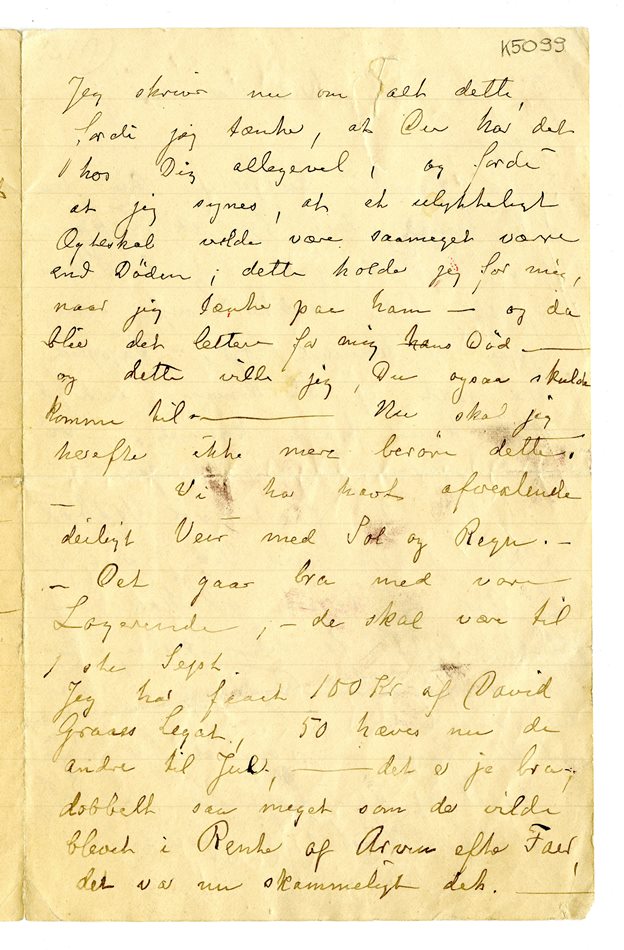 K5099
Jeg skriver nu om alt dette,
fordi jeg tænker, at Du har det
hos Dig allegevel, og fordi
at jeg synes, at et ulykkeligt
Ægteskab vilde være saameget værre
end Døden; dette holder jeg for mig,
naar jeg tænker paa ham — og da
blir det lettere for mig hans Død —
og dette vilde jeg, Du ogsaa skulde
komme til. — Nu skal jeg
herefter ikke mere berøre dette.
— Vi har havt afvexlende
deiligt Veir med Sol og Regn. —
— Det gaar bra med vore
Logerende, — de skal være til
1ste Sept.
Jeg har faaet 100 Kr af David
Graaes Legat, 50 hæves nu de
andre til Jul, — det er jo bra,
dobbelt saa meget som de vilde
blevet i Rente af Arven efter Faer,
det var nu skammeligt det. —